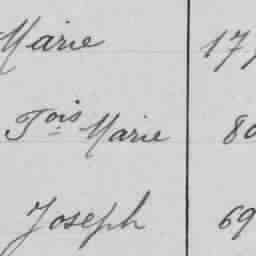 Marie 177
Fois Marie 80
Joseph 69